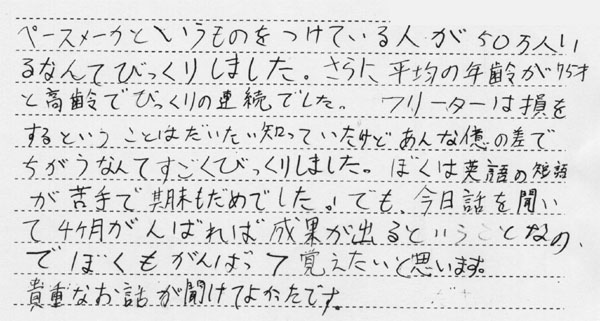 ペースメーカというものをつけている人が50万人い
るなんてびっくりしました。さらに、平均の年齢が75才
と高齢でびっくりの連続でした。 フリーターは損を
するということはだいたい知っていたけどあんな億の差で
ちがうなんてすごくびっくりしました。ぼくは英語の短語
が苦手で期末もだめでした。でも、今日話を聞い
て4ヶ月がんばれば成果が出るということなの、
でぼくもがんばって覚えたいと思います。
貴重なお話が聞けてよかたです。